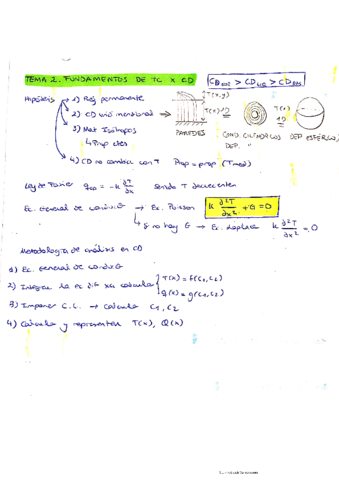 TEMA 2. FUNDAMENTOS DE TC X CD
CD > CD > CD
Hipótesis → 1) Reg permanente
2) CD unidimensional ⇒
3) Mat Isótropos
↳ Prop ctes
4) CD no cambia con T Prop = prop (Tmed)
T(x,y)
T(x) 1D
T(r)
1D
PAREDES
COND. CILÍNDRICOS
DEP. "
DEP ESFÉRICOS
Ley de Fourier q = -k ∂T/∂x siendo T decreciente
Ec. General de conducció → Ec. Poisson k ∂²T/∂x² + G = 0
↳ Si no hay G → Ec. Laplace k ∂²T/∂x² = 0
Metodología de análisis en CD
1) Ec. General de conducció
2) Integrar la ec dif xa calcular { T(x) = f(C1, C2)
q(x) = g(C1, C2)
3) Imponer C.C. → calcular C1, C2
4) Calcular y representar T(x), Q(x)